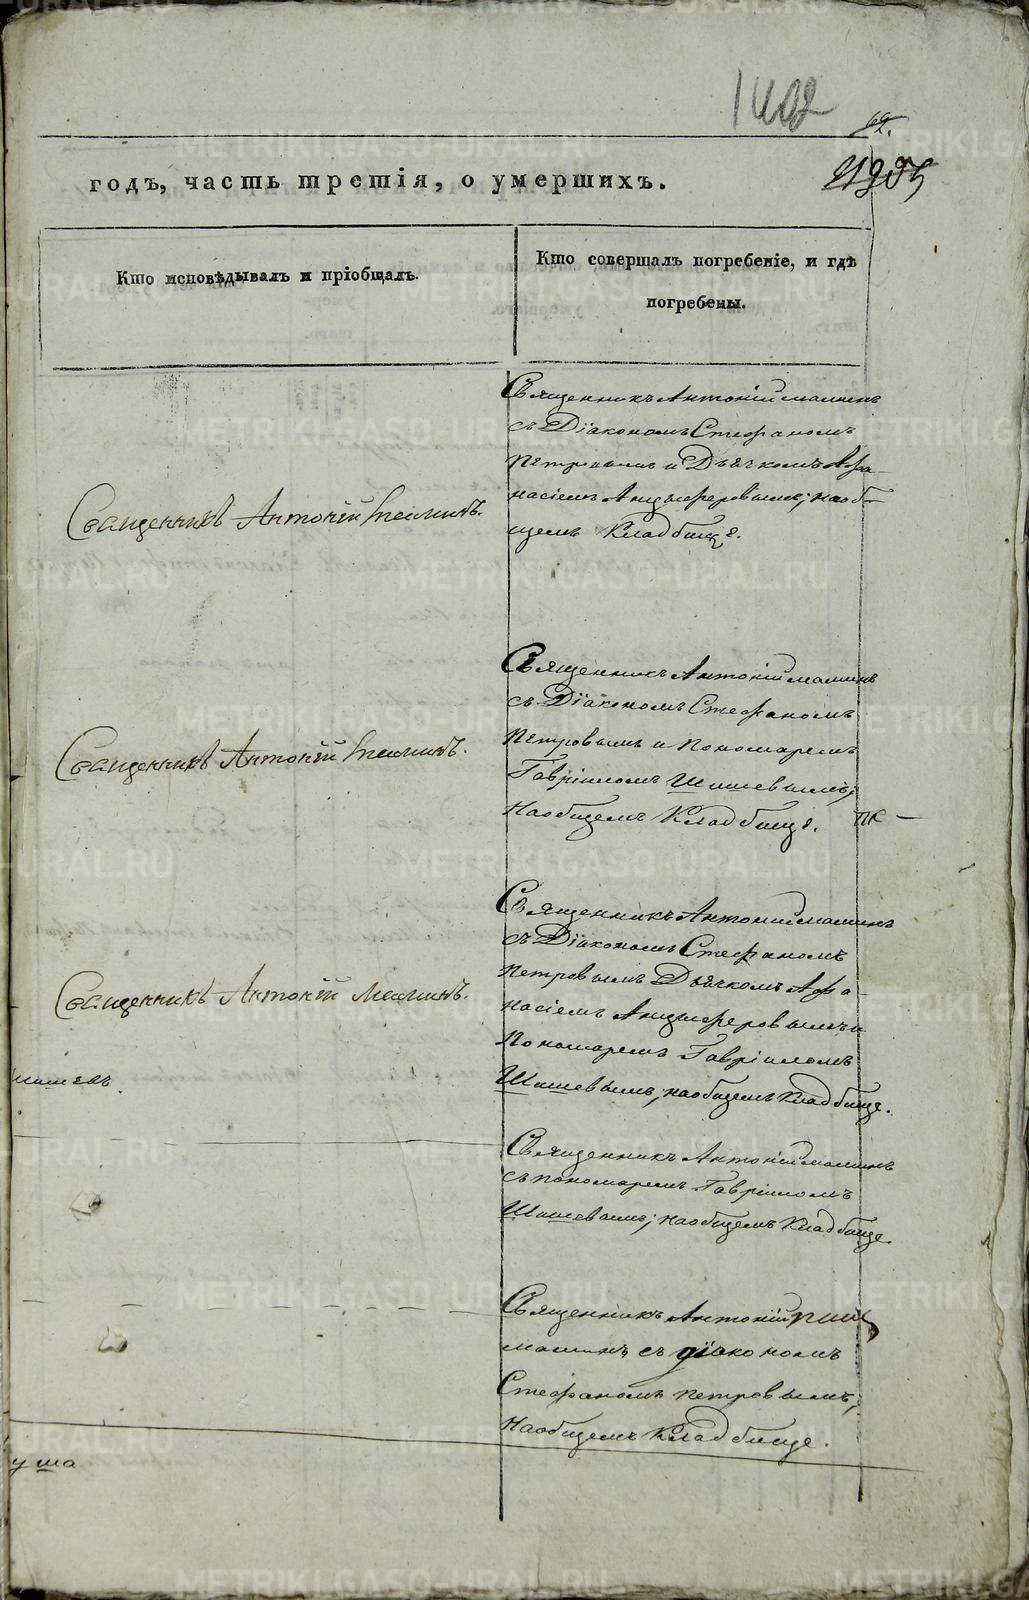 1402
69.
годъ, часть третія, о умершихъ.
Кто исповѣдывалъ и пріобщалъ.
Кто совершалъ погребеніе, и гдѣ
погребены.
Священникъ Антоній Маминъ
съ Діакономъ Стефаномъ
Петровымъ и Дьячкомъ Афа-
насіемъ Анцыферовымъ; на об-
щемъ Кладбищѣ.
Священникъ Антоній Маминъ.
Священникъ Антоній Маминъ
съ Діакономъ Стефаномъ
Петровымъ и Пономаремъ
Гавріиломъ Шишевымъ;
На общемъ Кладбищѣ.
Священникъ Антоній Маминъ.
Священникъ Антоній Маминъ
съ Діакономъ Стефаномъ
Петровымъ Дьячкомъ Афа-
насіемъ Анцыферовымъ и
Пономаремъ Гавріиломъ
Шишевымъ; на общемъ Кладбище.
Священникъ Антоній Маминъ.
Священникъ Антоній Маминъ
съ пономаремъ Гавріиломъ
Шишевымъ; на общемъ Кладбище.
Священникъ Антоній
Маминъ съ діакономъ
Стефаномъ Петровымъ;
На общемъ Кладбище.
METRIKI.GASO-URAL.RU